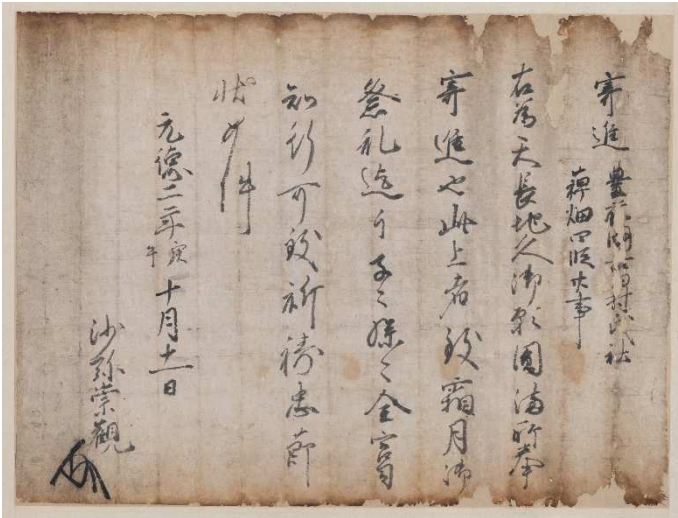 寄進 豊 村氏社
畑四段大事
右為天長地久御願圓満所奉
寄進也此上者致霜月御
祭礼迄于子々孫々全當
知行可致祈祷忠節
状如件
元徳二年庚午十月十一日
沙弥崇観